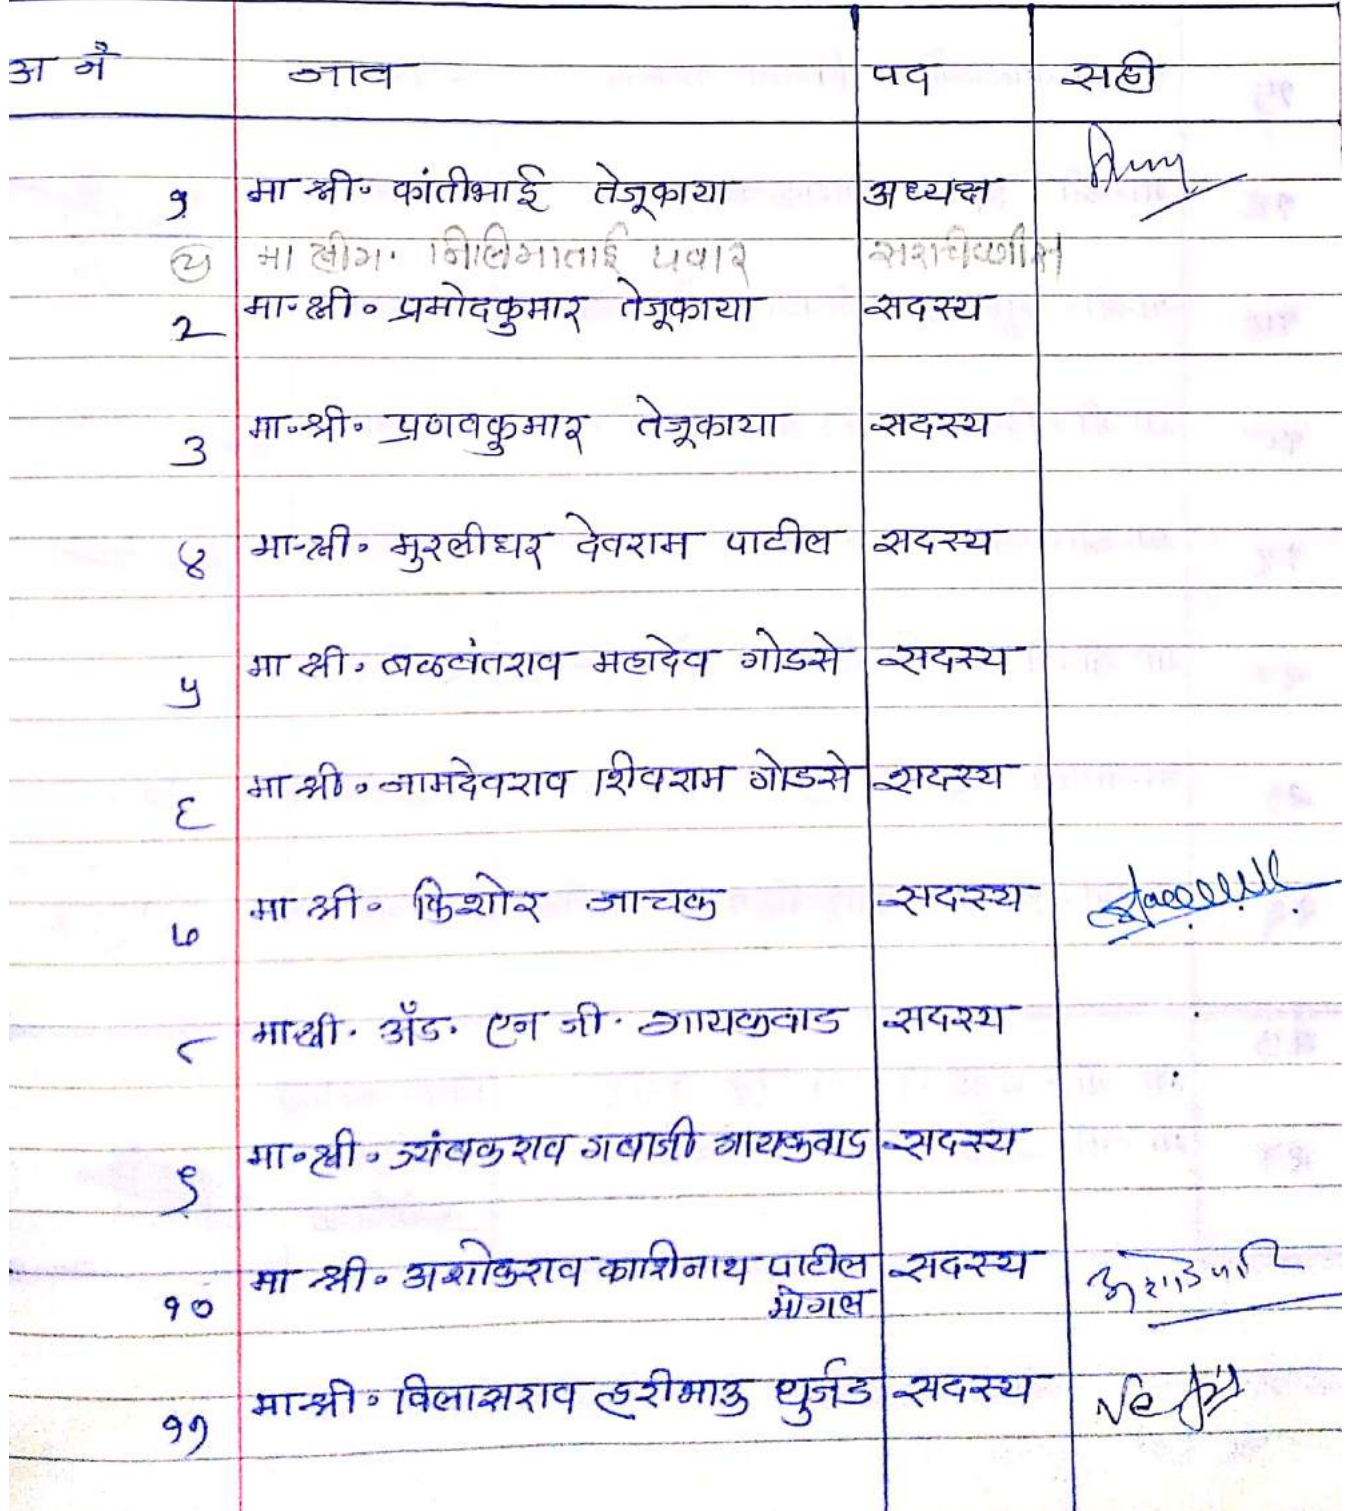 अ नं नाव पद सही
१ मा श्री. कांतीभाई तेजूकाया अध्यक्ष
२ मा श्रीम. निलिमाताई पवार सरचिणीस
2 मा. श्री. प्रमोदकुमार तेजूकाया सदस्य
3 मा. श्री. प्रणवकुमार तेजूकाया सदस्य
४ मा. श्री. मुरलीधर देवराम पाटील सदस्य
५ मा श्री. बळवंतराव महादेव गोडसे सदस्य
६ मा श्री. नामदेवराव शिवराम गोडसे सदस्य
७ मा श्री. किशोर जाचक सदस्य
८ मा श्री. अँड. एन जी. गायकवाड सदस्य
९ मा. श्री. त्र्यंबकराव गबाजी गायकवाड सदस्य
१० मा श्री. अशोकराव काशिनाथ पाटील सदस्य
मोगल
११ मा श्री. विलासराव हरीभाऊ धुर्जड सदस्य